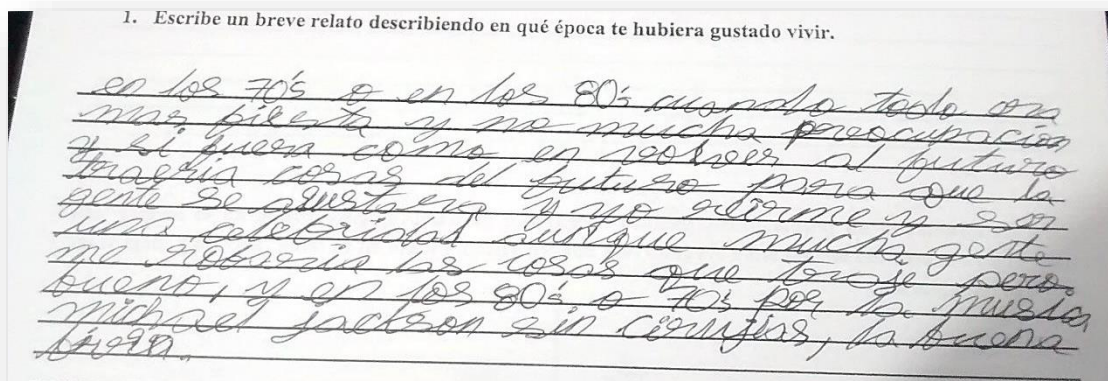 1. Escribe un breve relato describiendo en qué época te hubiera gustado vivir.
en los 70's o en los 80's cuando todo era
mas fiesta y no mucha preocupación
y si fuera como en volver al futuro
traeria cosas del futuro para que la
gente se asustara y yo reirme y ser
una celebridad aunque mucha gente
me robaria las cosas que traje pero
bueno, y en los 80's o 70's por la musica
michael jackson sin cirugias, la buena